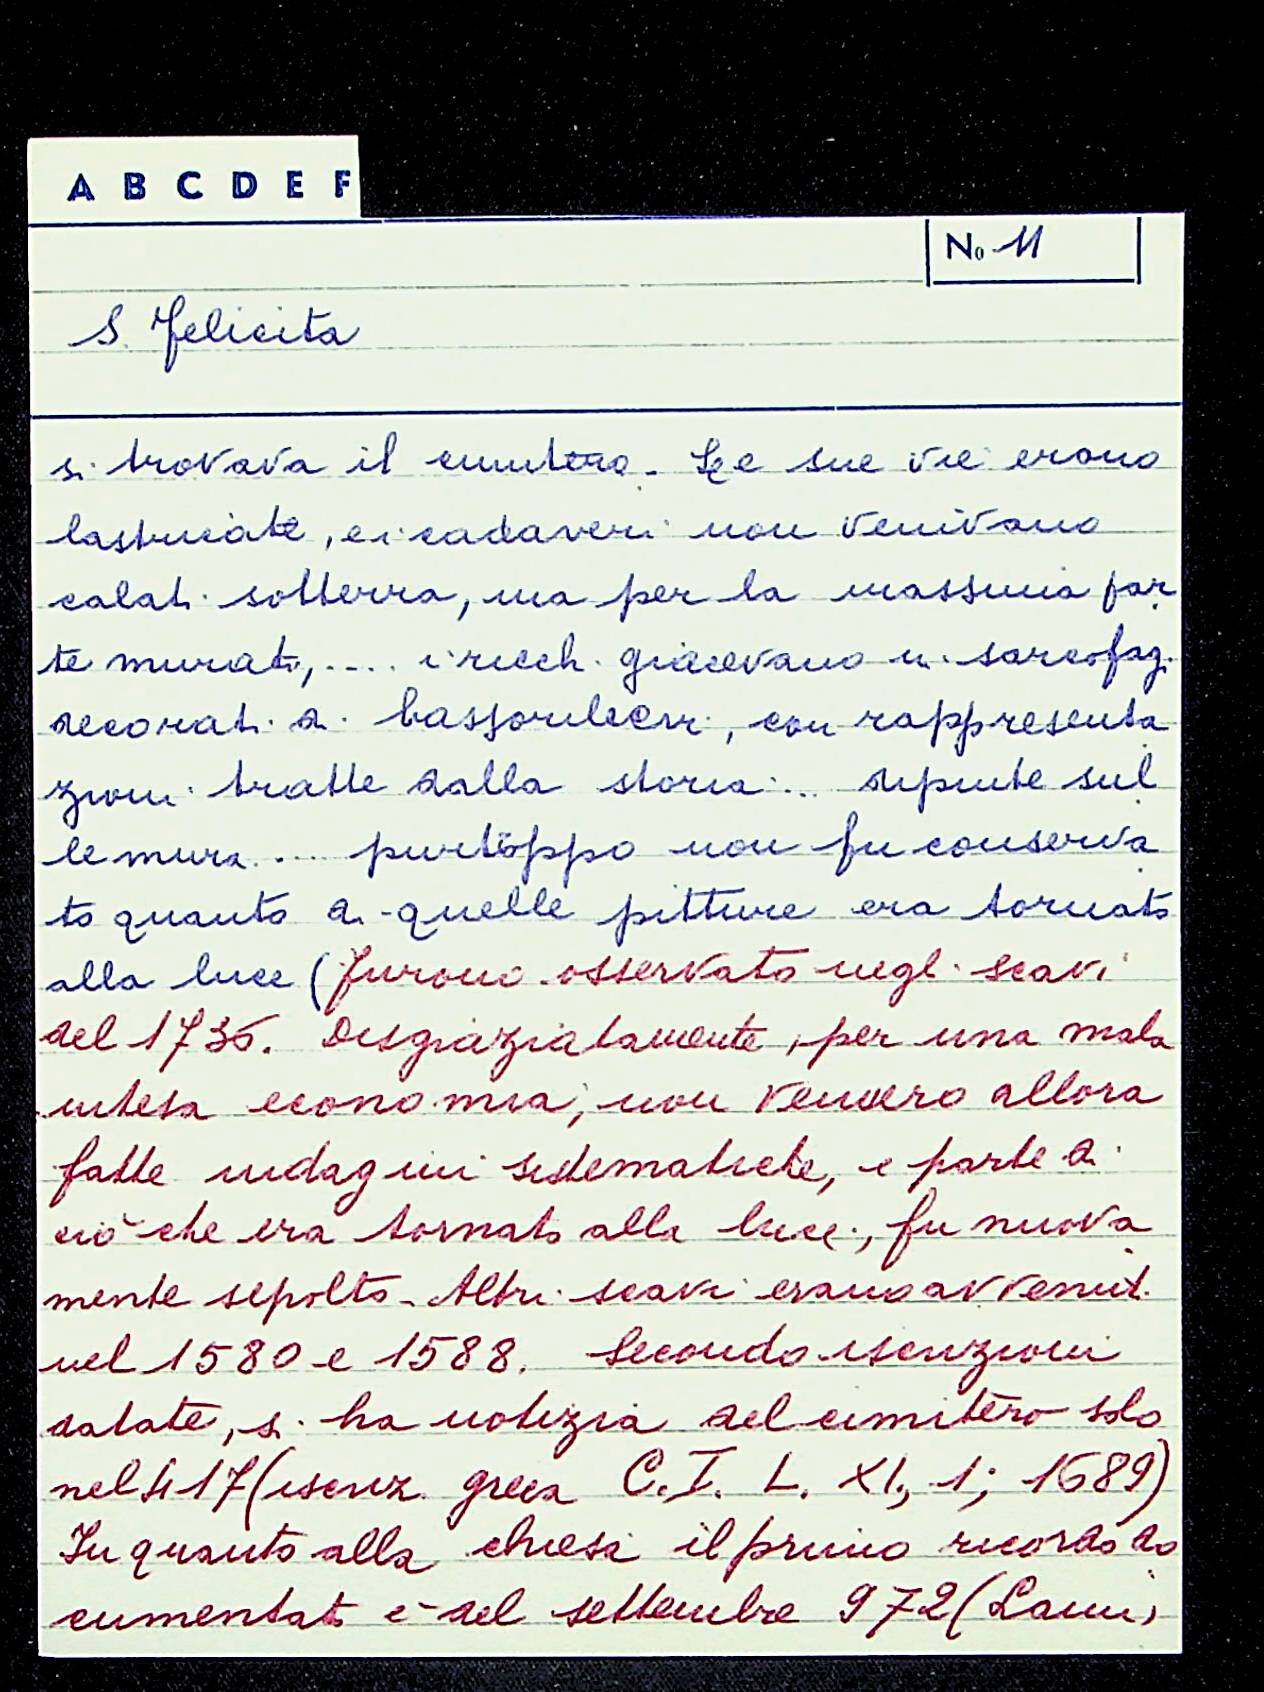 A B C D E F
No 11
S. Felicita
si trovava il cimitero. Le sue vie erano
lastricate, e i cadaveri non venivano
calati sotterra, ma per la massima par
te murati, .... i ricchi giacevano in sarcofagi
decorati di bassorilievi, con rappresenta
zioni tratte dalla storia ... dipinte sul
le mura .... purtroppo non fu conserva
to quanto di quelle pitture era tornato
alla luce (furono osservato negli scavi
del 1736. Disgraziatamente, per una mala
intesa economia, non vennero allora
fatte indagini sistematiche, e parte di
ciò che era tornato alla luce, fu nuova
mente sepolto. Altri scavi erano avvenuti
nel 1580 e 1588. Secondo iscrizioni
datate, si ha notizia del cimitero solo
nel 417 (iscriz. greca C.I.L. XI, 1; 1689)
In quanto alla chiesa il primo ricordo do
cumentato è del settembre 972 (Lami,